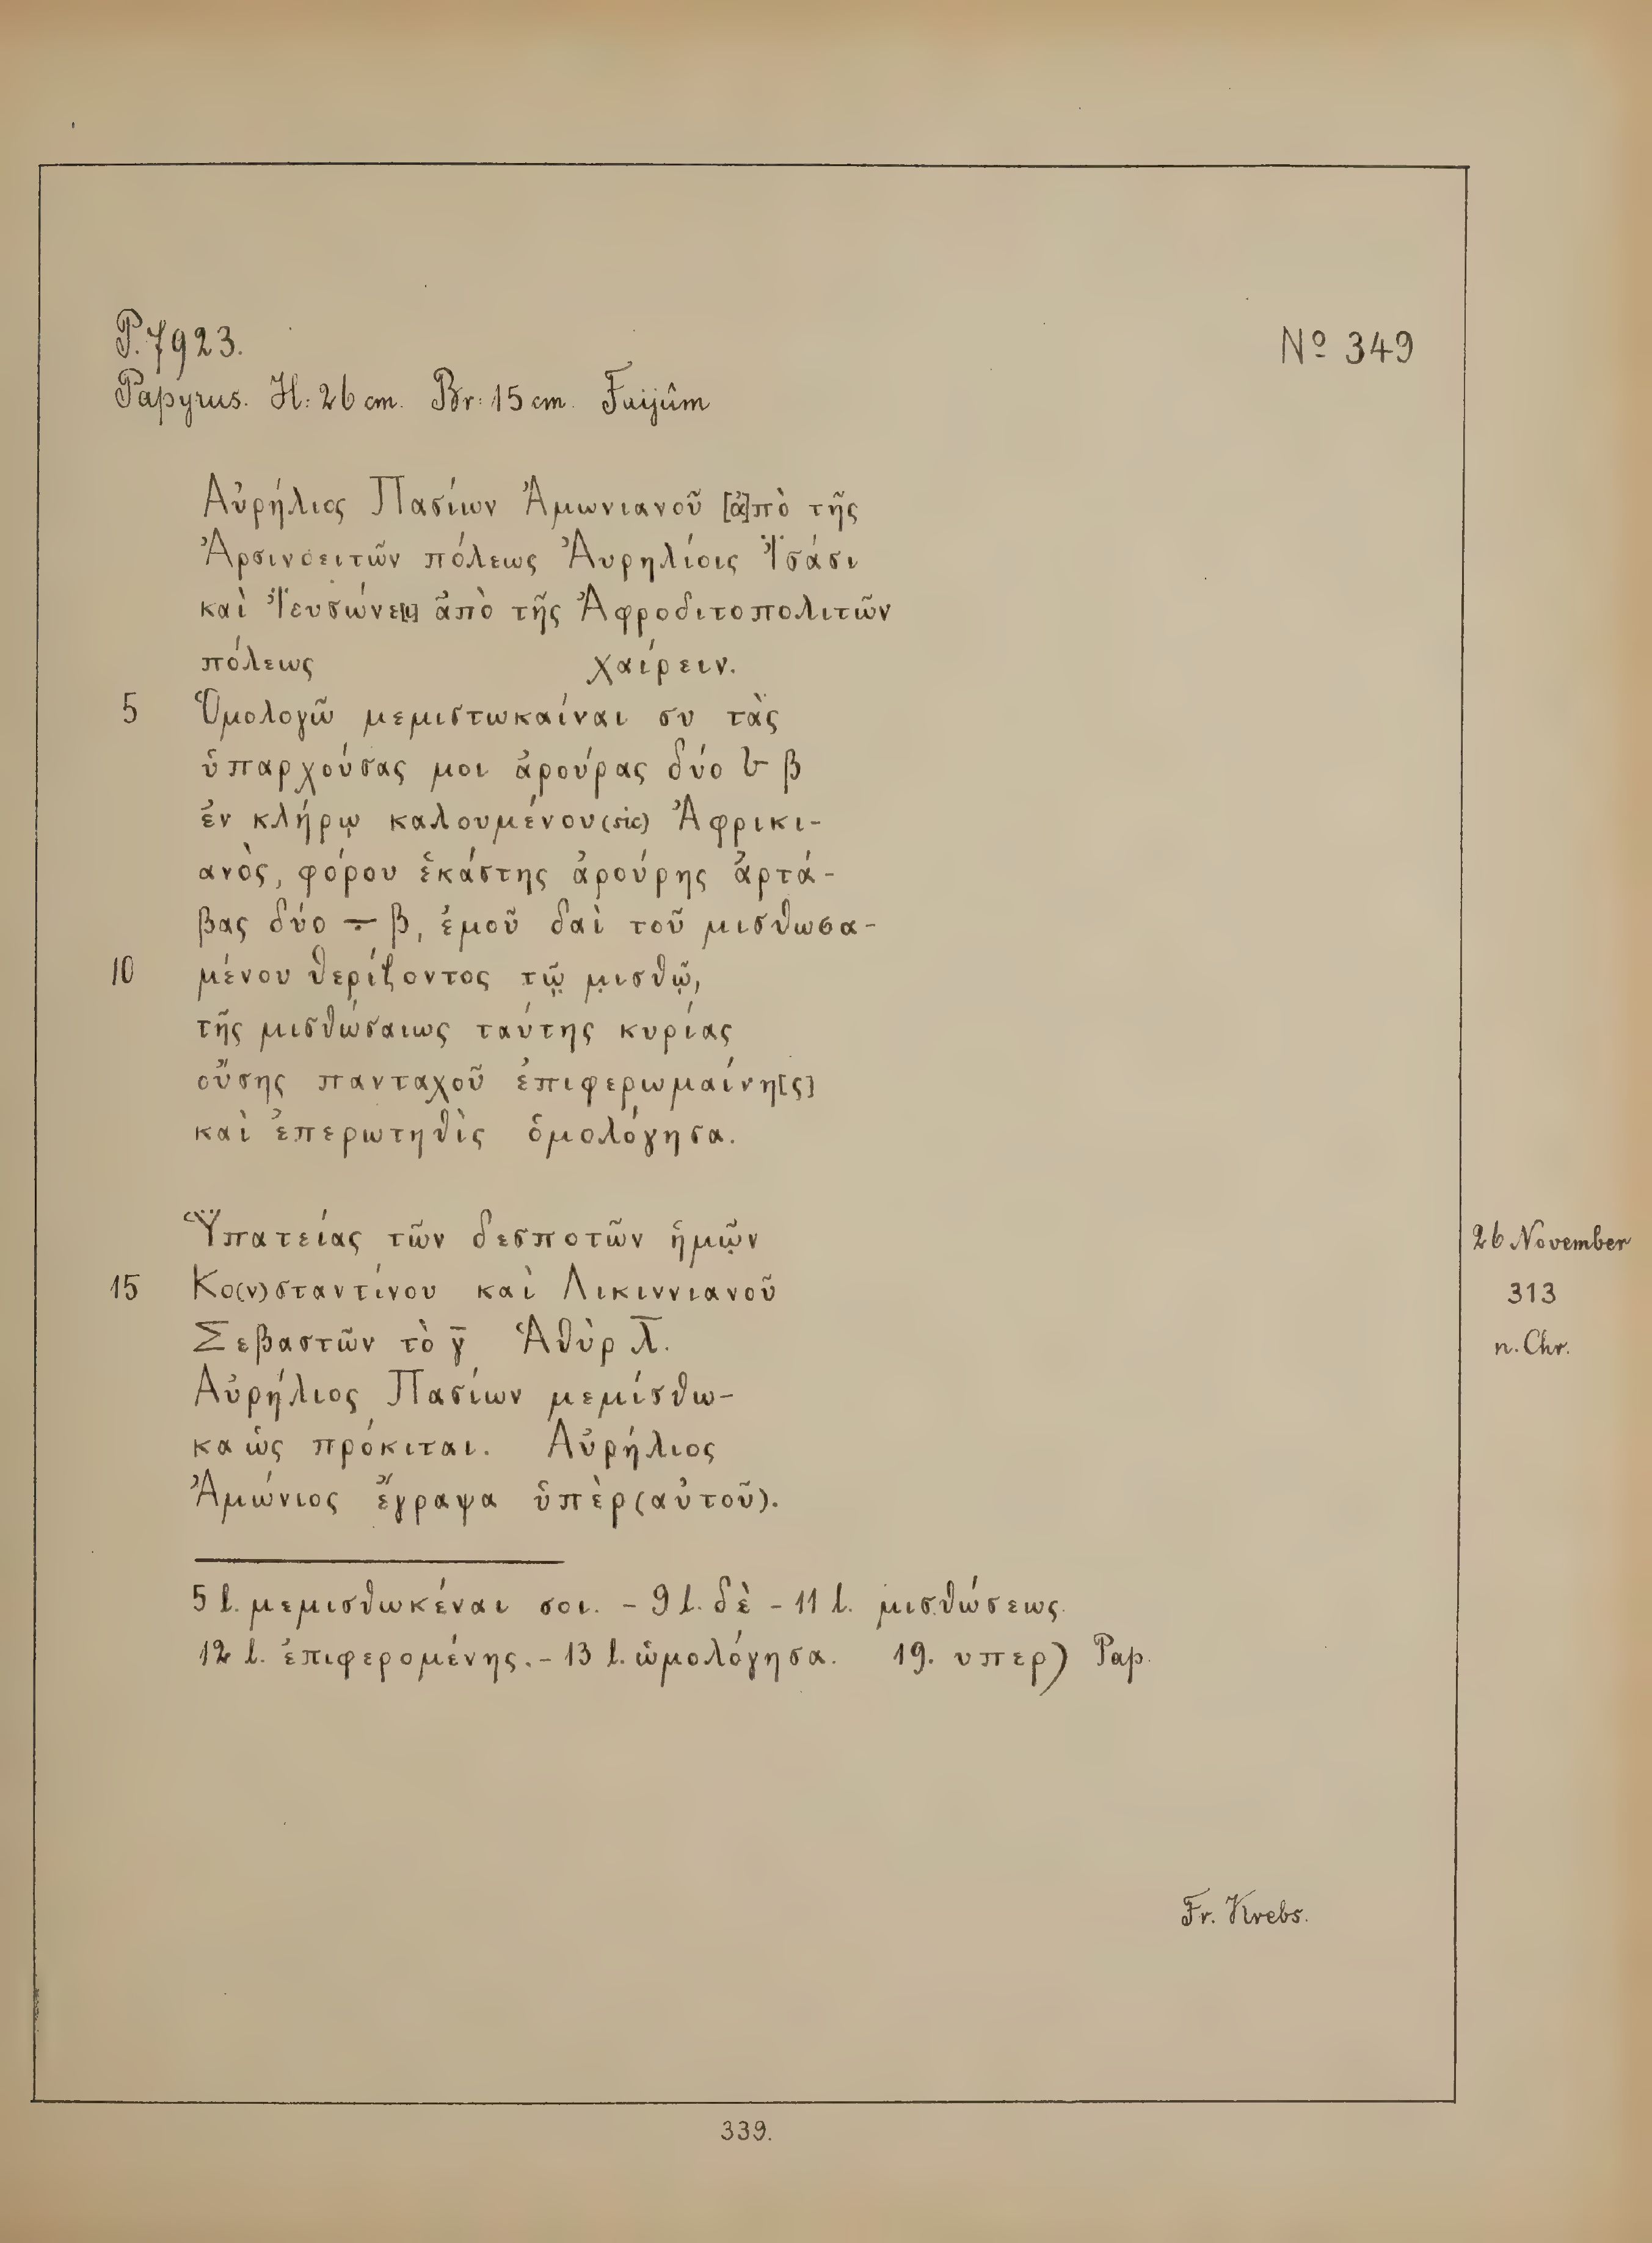 P. 7923.
Nº 349
Papyrus. H: 26 cm. Br: 15 cm. Faijûm
Αὐρήλιος Πασίων Ἀμωνιανοῦ [ἀ]πὸ τῆς
Ἀρσινοειτῶν πόλεως Ἀυρηλίοις Ἰ̈σάσι
καὶ Ἰ̈ευσώνε[ι] ἀπὸ τῆς Ἀφροδιτοπολιτῶν
πόλεως χαίρειν.
5 Ὁμολογῶ μεμιστωκαίναι συ τὰς
ὑπαρχούσας μοι ἀρούρας δύο 𐅹 β
ἐν κλήρῳ καλουμένου (sic) Ἀφρικι-
ανὸς, φόρου ἑκάστης ἀρούρης ἀρτά-
βας δύο ⨪ β, ἐμοῦ δαὶ τοῦ μισθωσα-
10 μένου θερίζοντος τῷ̣ μ̣ισθῷ,
τῆς μισθώσαιως ταύτης κυρίας
οὔσης πανταχοῦ ἐπιφερωμαίνη[ς]
καὶ ἐπερωτηθὶς ὁμολόγησα.
Ὑ̈πατείας τῶν δεσποτῶν ἡμῶ̣ν
26 November
15 Κο(ν)σταντίνου καὶ Λικιννιανοῦ
313
Σεβαστῶν τὸ γ̅ Ἁθὺρ λ̅.
n. Chr.
Αὐρήλιος Πασίων μεμίσθω-
κα ὡς πρόκιται. Αὐρήλιος
Ἀμώνιος ἔγραψα ὑπὲρ (αὐτοῦ).
5 l. μεμισθωκέναι σοι. - 9 l. δὲ - 11 l. μισθώσεως.
12 l. ἐπιφερομένης. - 13 l. ὡμολόγησα. 19. υπερ) Pap.
Fr. Krebs.
339.